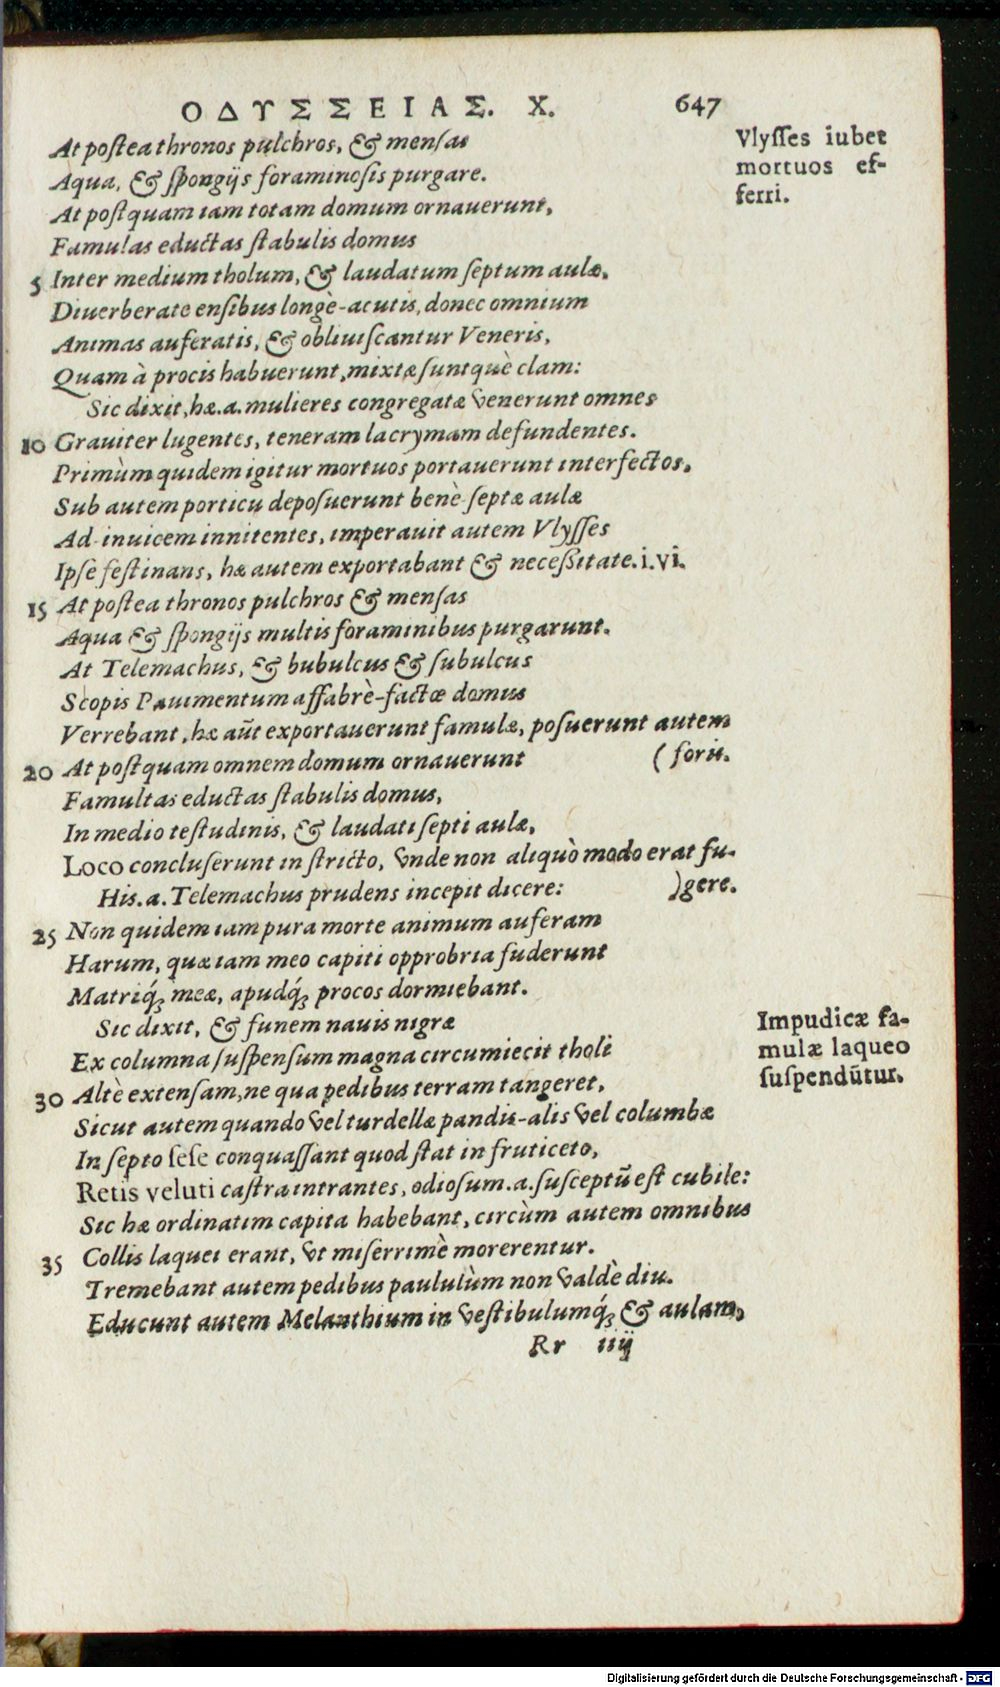 ΟΔΥΣΣΕΙΑΣ. Χ. 647
At postea thronos pulchros, & mensas
Aqua, & spongijs foraminosis purgare.
At postquam iam totam domum ornauerunt,
Famulas eductas stabulis domus
5 Inter medium tholum, & laudatum septum aulæ,
Diuerberate ensibus longè-acutis, donec omnium
Animas auferatis, & obliuiscantur Veneris,
Quam à procis habuerunt, mixtæ suntquè clam:
Sic dixit, hæ.a. mulieres congregatæ venerunt omnes
10 Grauiter lugentes, teneram lacrymam defundentes.
Primùm quidem igitur mortuos portauerunt interfectos,
Sub autem porticu deposuerunt benè-septæ aulæ
Ad-inuicem innitentes, imperauit autem Vlysses
Ipse festinans, hæ autem exportabant & necessitate.i.vi.
15 At postea thronos pulchros & mensas
Aqua & spongijs multis foraminibus purgarunt.
At Telemachus, & bubulcus & subulcus
Scopis Pauimentum affabrè-factæ domus
Verrebant, hæ aūt exportauerunt famulæ, posuerunt autem
20 At postquam omnem domum ornauerunt (foris.
Famultas eductas stabulis domus,
In medio testudinis, & laudati septi aulæ,
Loco concluserunt in stricto, vnde non aliquò modo erat fu-
His.a. Telemachus prudens incepit dicere: )gere.
25 Non quidem iam pura morte animum auferam
Harum, quæ iam meo capiti opprobria fuderunt
Matriq́; meæ, apudq́; procos dormiebant.
Sic dixit, & funem nauis nigræ
Ex columna suspensum magna circumiecit tholi
30 Altè extensam, ne qua pedibus terram tangeret,
Sicut autem quando vel turdellæ pandis-alis vel columbæ
In septo sese conquassant quod stat in fruticeto,
Retis veluti castra intrantes, odiosum.a. susceptū est cubile:
Sic hæ ordinatim capita habebant, circùm autem omnibus
35 Collis laquei erant, vt miserrimè morerentur.
Tremebant autem pedibus paululùm non valdè diu.
Educunt autem Melanthium in vestibulumq́; & aulam,
Rr iiij
Vlysses iubet
mortuos ef-
ferri.
Impudicæ fa-
mulæ laqueo
suspendūtur.
Digitalisierung gefördert durch die Deutsche Forschungsgemeinschaft - DFG